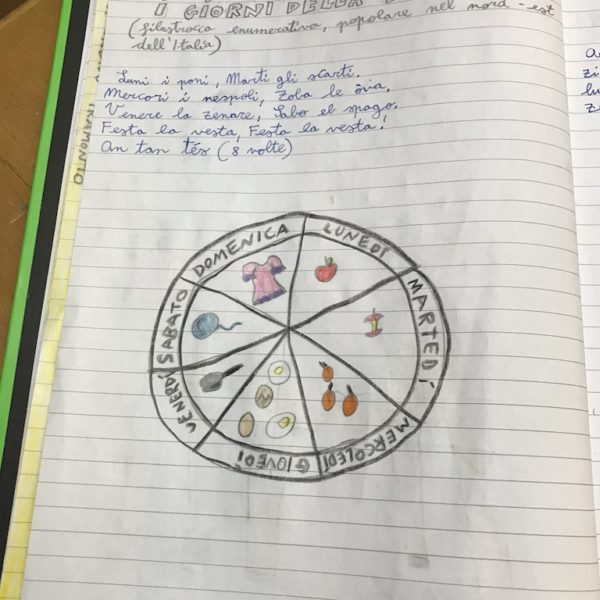 I GIORNI DELLA
(filastrocca enumerativa, popolare nel nord-est
dell'Italia)
Luni i poni, Marti gli scarti.
Mercori i nespoli, Zoba le òva.
Venere la zenare, Sabo el spago.
Festa la vesta, Festa la vesta!
An tan tés (8 volte)
DOMENICA
LUNEDÌ
MARTEDÌ
MERCOLEDÌ
GIOVEDÌ
VENERDÌ
SABATO